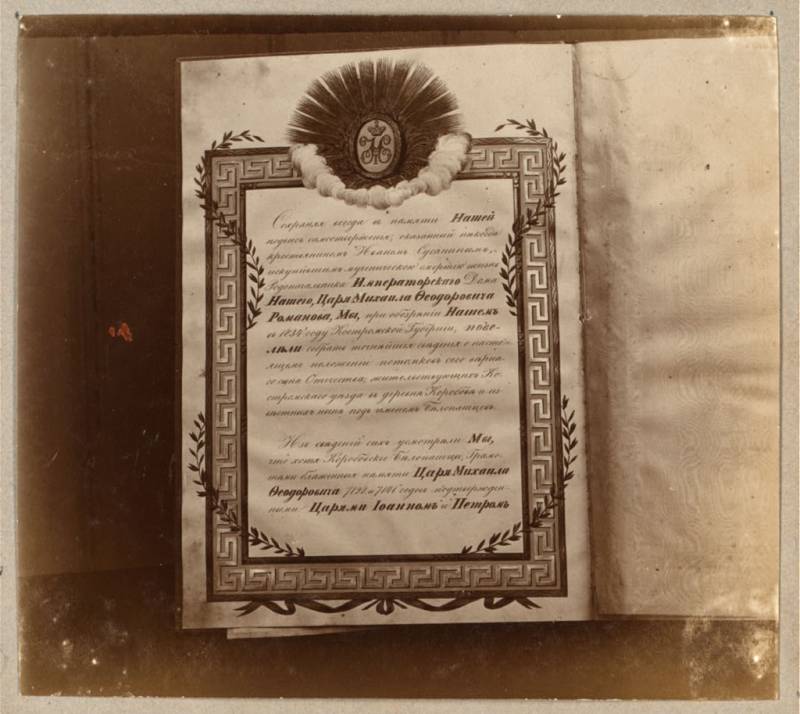 Н I
Сохраняя всегда в памяти Нашей
подвиг самоотверженья, оказанный никогда
крестьянином Иваном Сусаниным,
искупившим мученическою смертию жизнь
Родоначальника Императорскаго Дома
Нашего, Царя Михаила Ѳеодоровича
Романова, Мы, при обозрѣніи Нашемъ
въ 1834 году Костромской Губерніи, пове-
лѣли собрать точнѣйшія свѣдѣнія о насто-
ящемъ положеніи потомковъ сего вѣрна-
го сына Отечества, жительствующихъ Ко-
стромскаго уѣзда въ деревнѣ Коробовѣ и из-
вѣстныхъ нынѣ подъ именемъ Бѣлопашцевъ.
Изъ свѣдѣній сихъ усмотрѣли Мы,
что хотя Коробовскіе Бѣлопашцы, Грамо-
тами блаженныя памяти Царя Михаила
Ѳеодоровича годовъ подтвержден-
ными Царями Іоанномъ и Петромъ